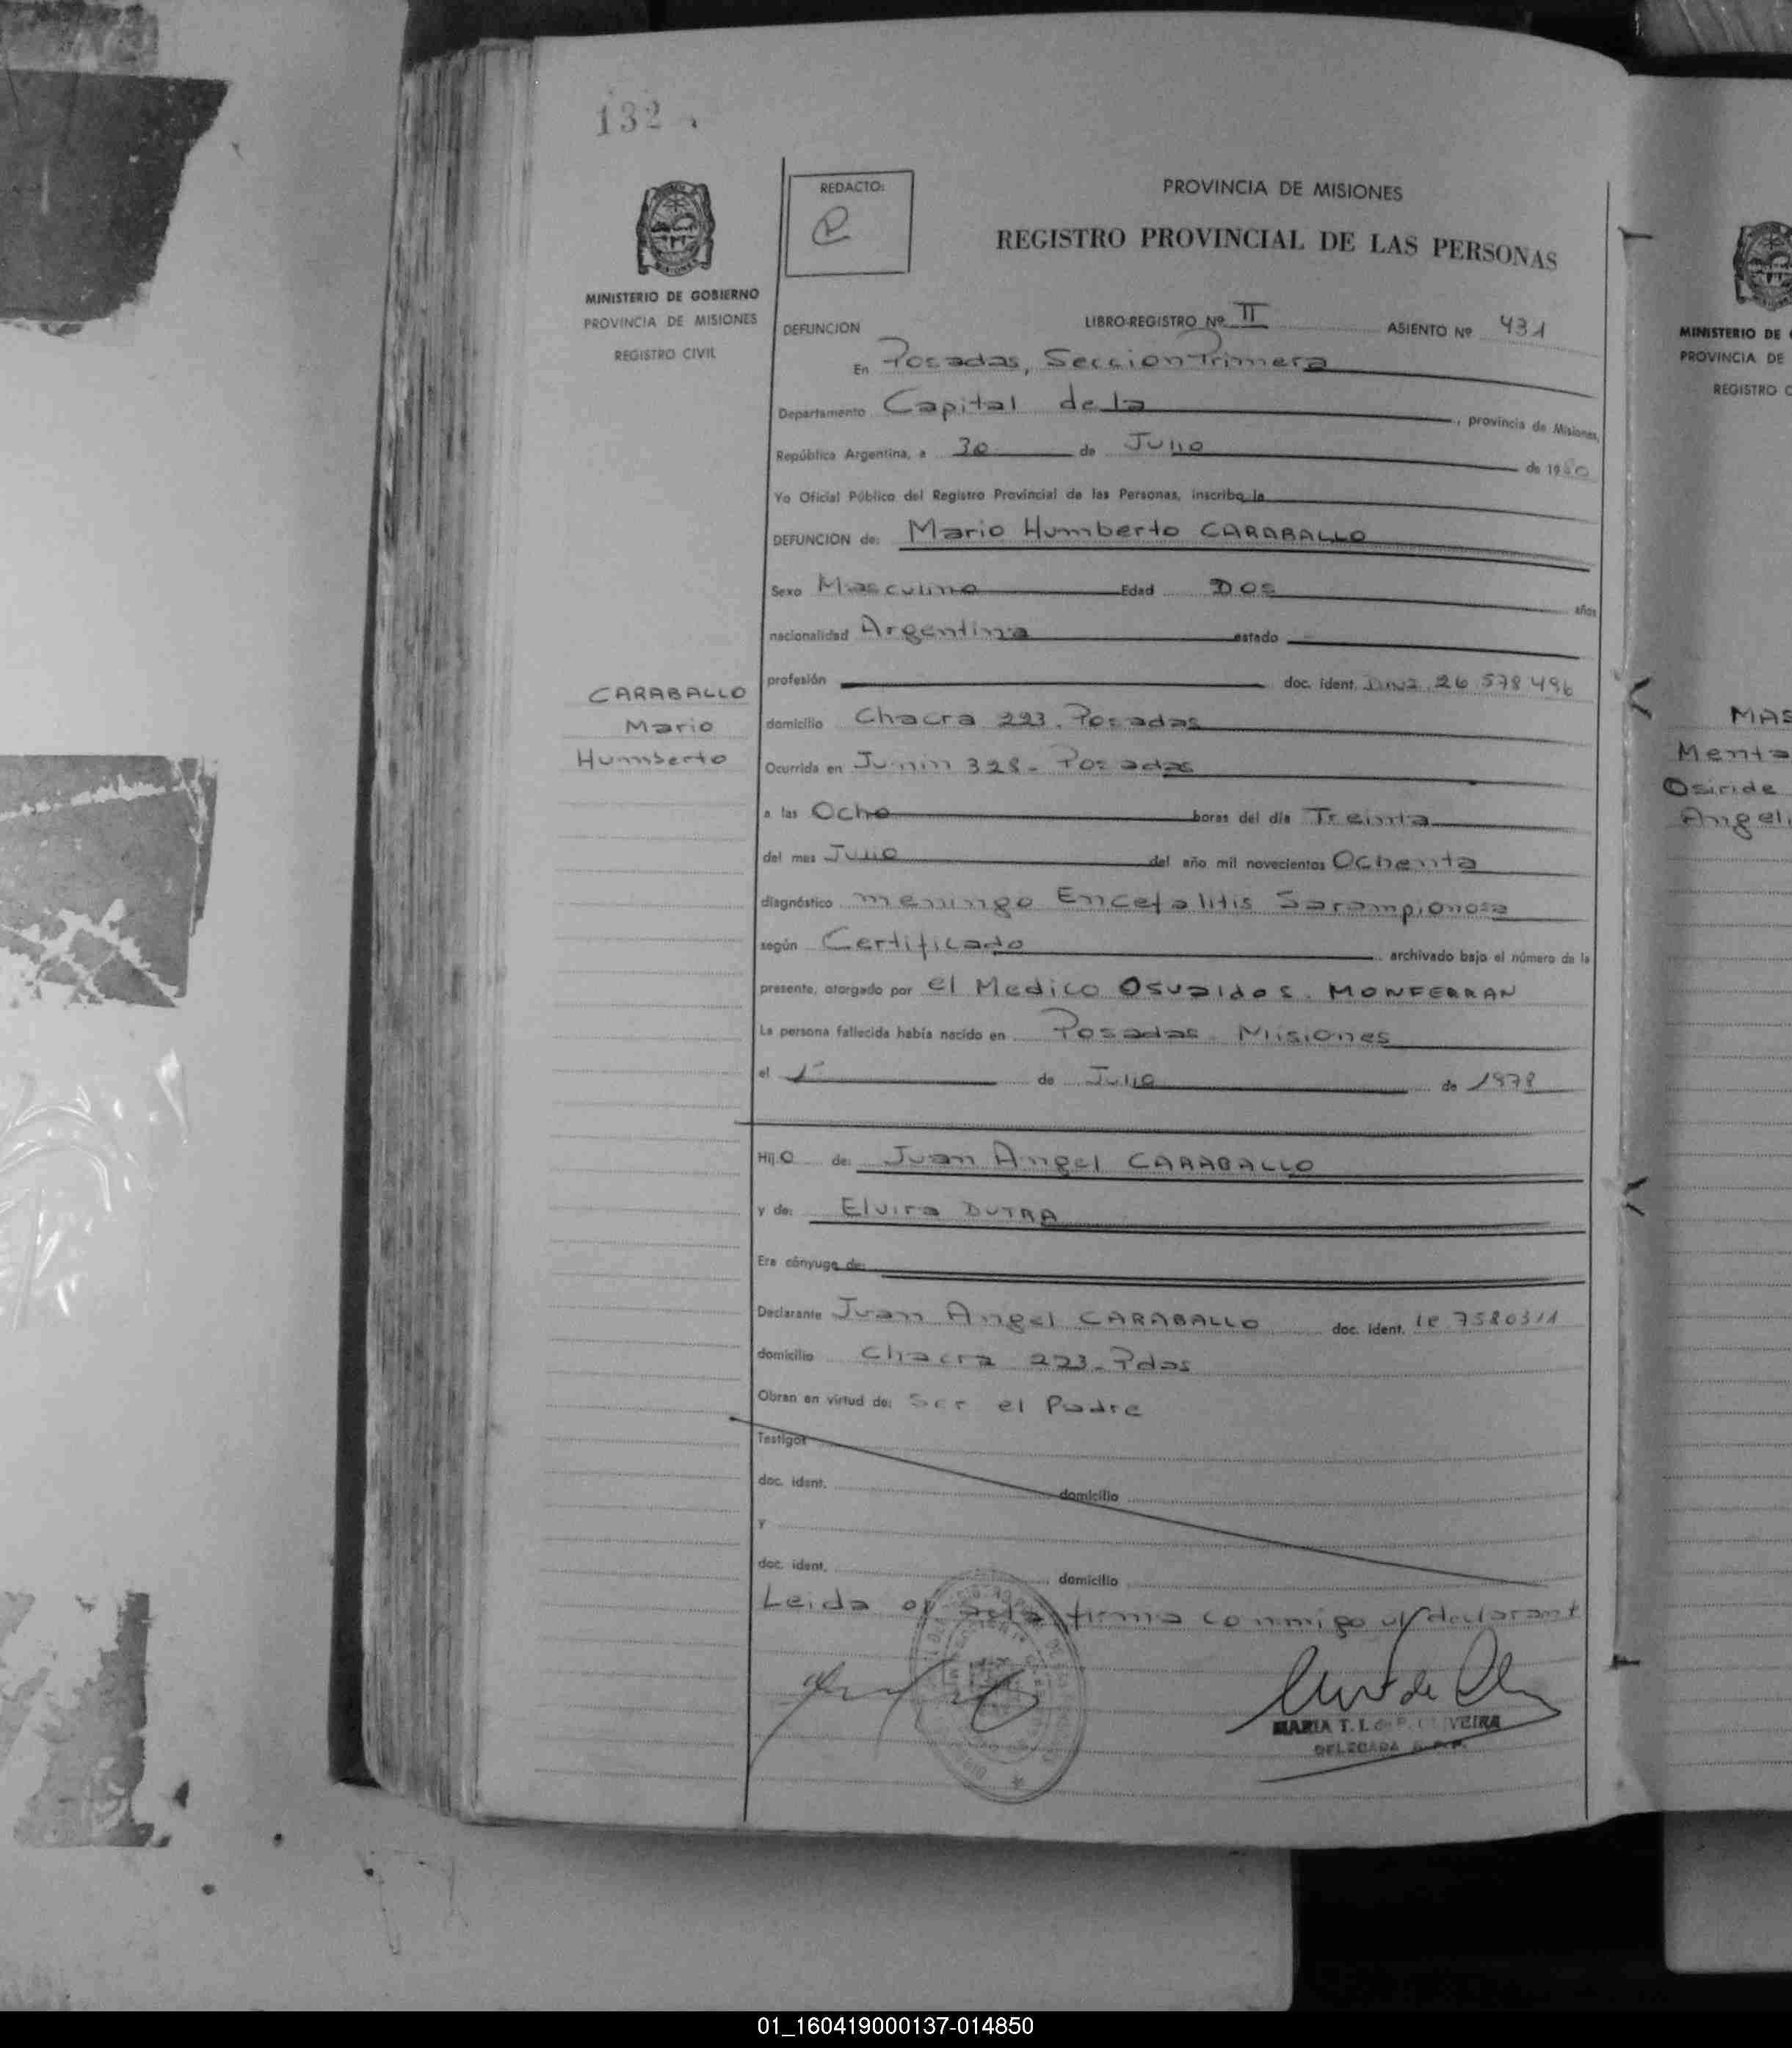 132
REDACTO:
PROVINCIA DE MISIONES
REGISTRO PROVINCIAL DE LAS PERSONAS
MINISTERIO DE GOBIERNO
PROVINCIA DE MISIONES
REGISTRO CIVIL
DEFUNCION LIBRO-REGISTRO Nº II ASIENTO Nº 431
En Posadas, Seccion Primera
Departamento Capital de la, provincia de Misiones,
República Argentina, a 30 de Julio de 1980
Yo Oficial Público del Registro Provincial de las Personas, inscribo la
DEFUNCION de: Mario Humberto CARABALLO
Sexo Masculino Edad Dos años
nacionalidad Argentina estado
profesión doc. ident. 26.578.496
CARABALLO
Mario
Humberto
domicilio Chacra 223. Posadas
Ocurrida en Junin 328 - Posadas
a las Ocho horas del día Treinta
del mes Julio del año mil novecientos Ochenta
diagnóstico meningo Encefalitis Sarampionosa
según Certificado archivado bajo el número de la
presente, otorgado por el Medico Osvaldo S. MONFERRAN
La persona fallecida había nacido en Posadas - Misiones
el 1º de Julio de 1978
Hijo de: Juan Angel CARABALLO
y de: Elvira DUTRA
Era cónyuge de:
Declarante Juan Angel CARABALLO doc. ident. le 7580311
domicilio Chacra 223 - Pdas
Obran en virtud de: Ser el Padre
Testigos
doc. ident. domicilio
y
doc. ident. domicilio
Leida el acta firma conmigo el declarant
MARIA T. I. de P. OLIVEIRA
DELEGADA R.P.P.
MINISTERIO DE
PROVINCIA DE
REGISTRO C
MAS
Menta
Osiride
Angeli
01_160419000137-014850